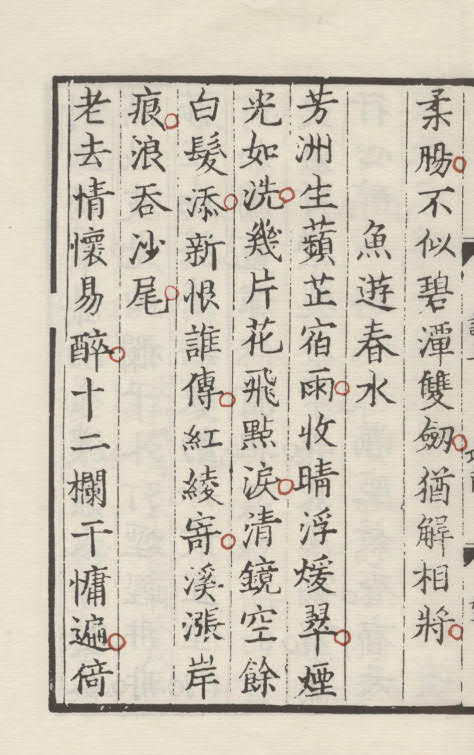 柔腸不似碧潭雙劒猶解相將
魚遊春水
芳洲生蘋芷宿雨收晴浮煖翠煙
光如洗幾片花飛點淚清鏡空餘
白髮添新恨誰傳紅綾寄溪漲岸
痕浪吞沙尾
老去情懷易醉十二欄干慵遍倚